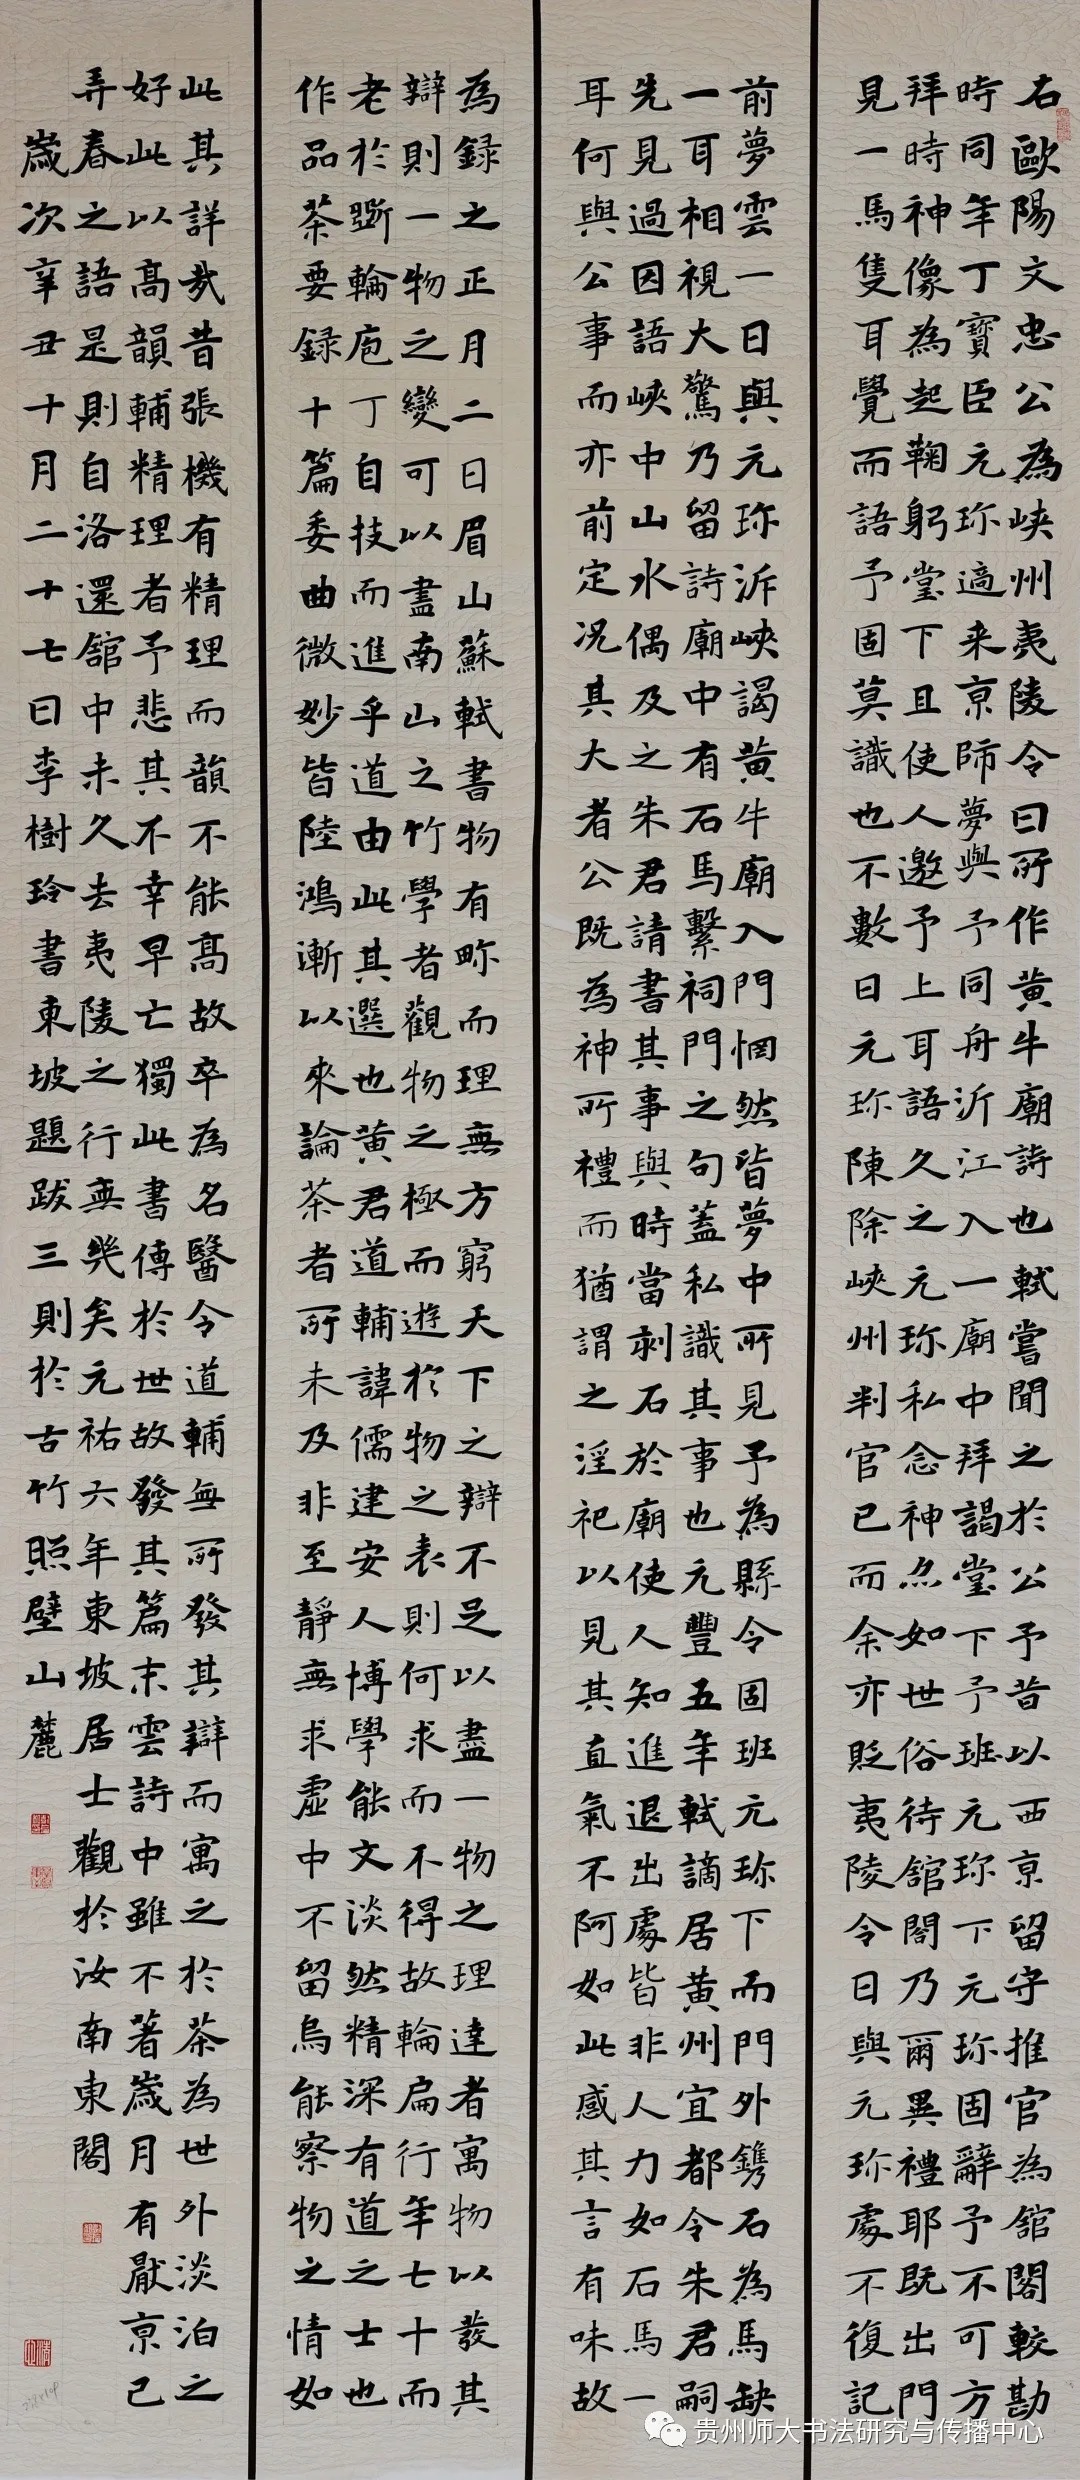 右歐陽文忠公為峽州夷陵令日所作黃牛廟詩也軾嘗聞之於公予昔以西京留守推官為舘閣較勘
時同年丁寶臣元珎適来京師夢與予同舟泝江入一廟中拜謁堂下予班元珎下元珎固辭予不可方
拜時神像為起鞠躬堂下且使人邀予上耳語久之元珎私念神亦如世俗待舘閣乃爾異禮耶既出門
見一馬隻耳覺而語予固莫識也不數日元珎陳除峽州判官已而余亦貶夷陵令日與元珎處不復記
前夢雲一日與元珎泝峽謁黃牛廟入門惘然皆夢中所見予為縣令固班元珎下而門外鐫石為馬缺
一耳相視大驚乃留詩廟中有石馬繫祠門之句蓋私識其事也元豐五年軾謫居黃州宜都令朱君嗣
先見過因語峽中山水偶及之朱君請書其事與時當刺石於廟使人知進退出處皆非人力如石馬一
耳何與公事而亦前定况其大者公既為神所禮而猶謂之淫祀以見其直氣不阿如此感其言有味故
為録之正月二日眉山蘇軾書物有畛而理無方窮天下之辯不足以盡一物之理達者寓物以發其
辯則一物之變可以盡南山之竹學者觀物之極而遊於物之表則何求而不得故輪扁行年七十而
老於斵輪庖丁自技而進乎道由此其選也黃君道輔諱儒建安人博學能文淡然精深有道之士也
作品茶要録十篇委曲微妙皆陸鴻漸以來論茶者所未及非至靜無求虛中不留烏能察物之情如
此其詳哉昔張機有精理而韻不能高故卒為名醫令道輔無所發其辯而寓之於茶為世外淡泊之
好此以高韻輔精理者予悲其不幸早亡獨此書傳於世故發其篇末雲詩中雖不著歲月有厭京已
弄春之語是則自洛還舘中未久去夷陵之行無幾矣元祐六年東坡居士觀於汝南東閣
歲次辛丑十月二十七日李樹玲書東坡題跋三則於古竹照壁山麓
贵州师大书法研究与传播中心